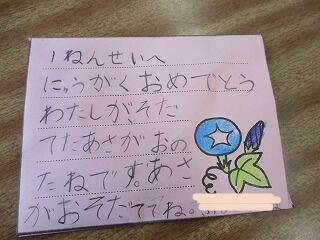 1ねんせいへ
にゅうがくおめでとう
わたしが、そだ
てたあさがおの
たねです。あさ
がおそだててね。